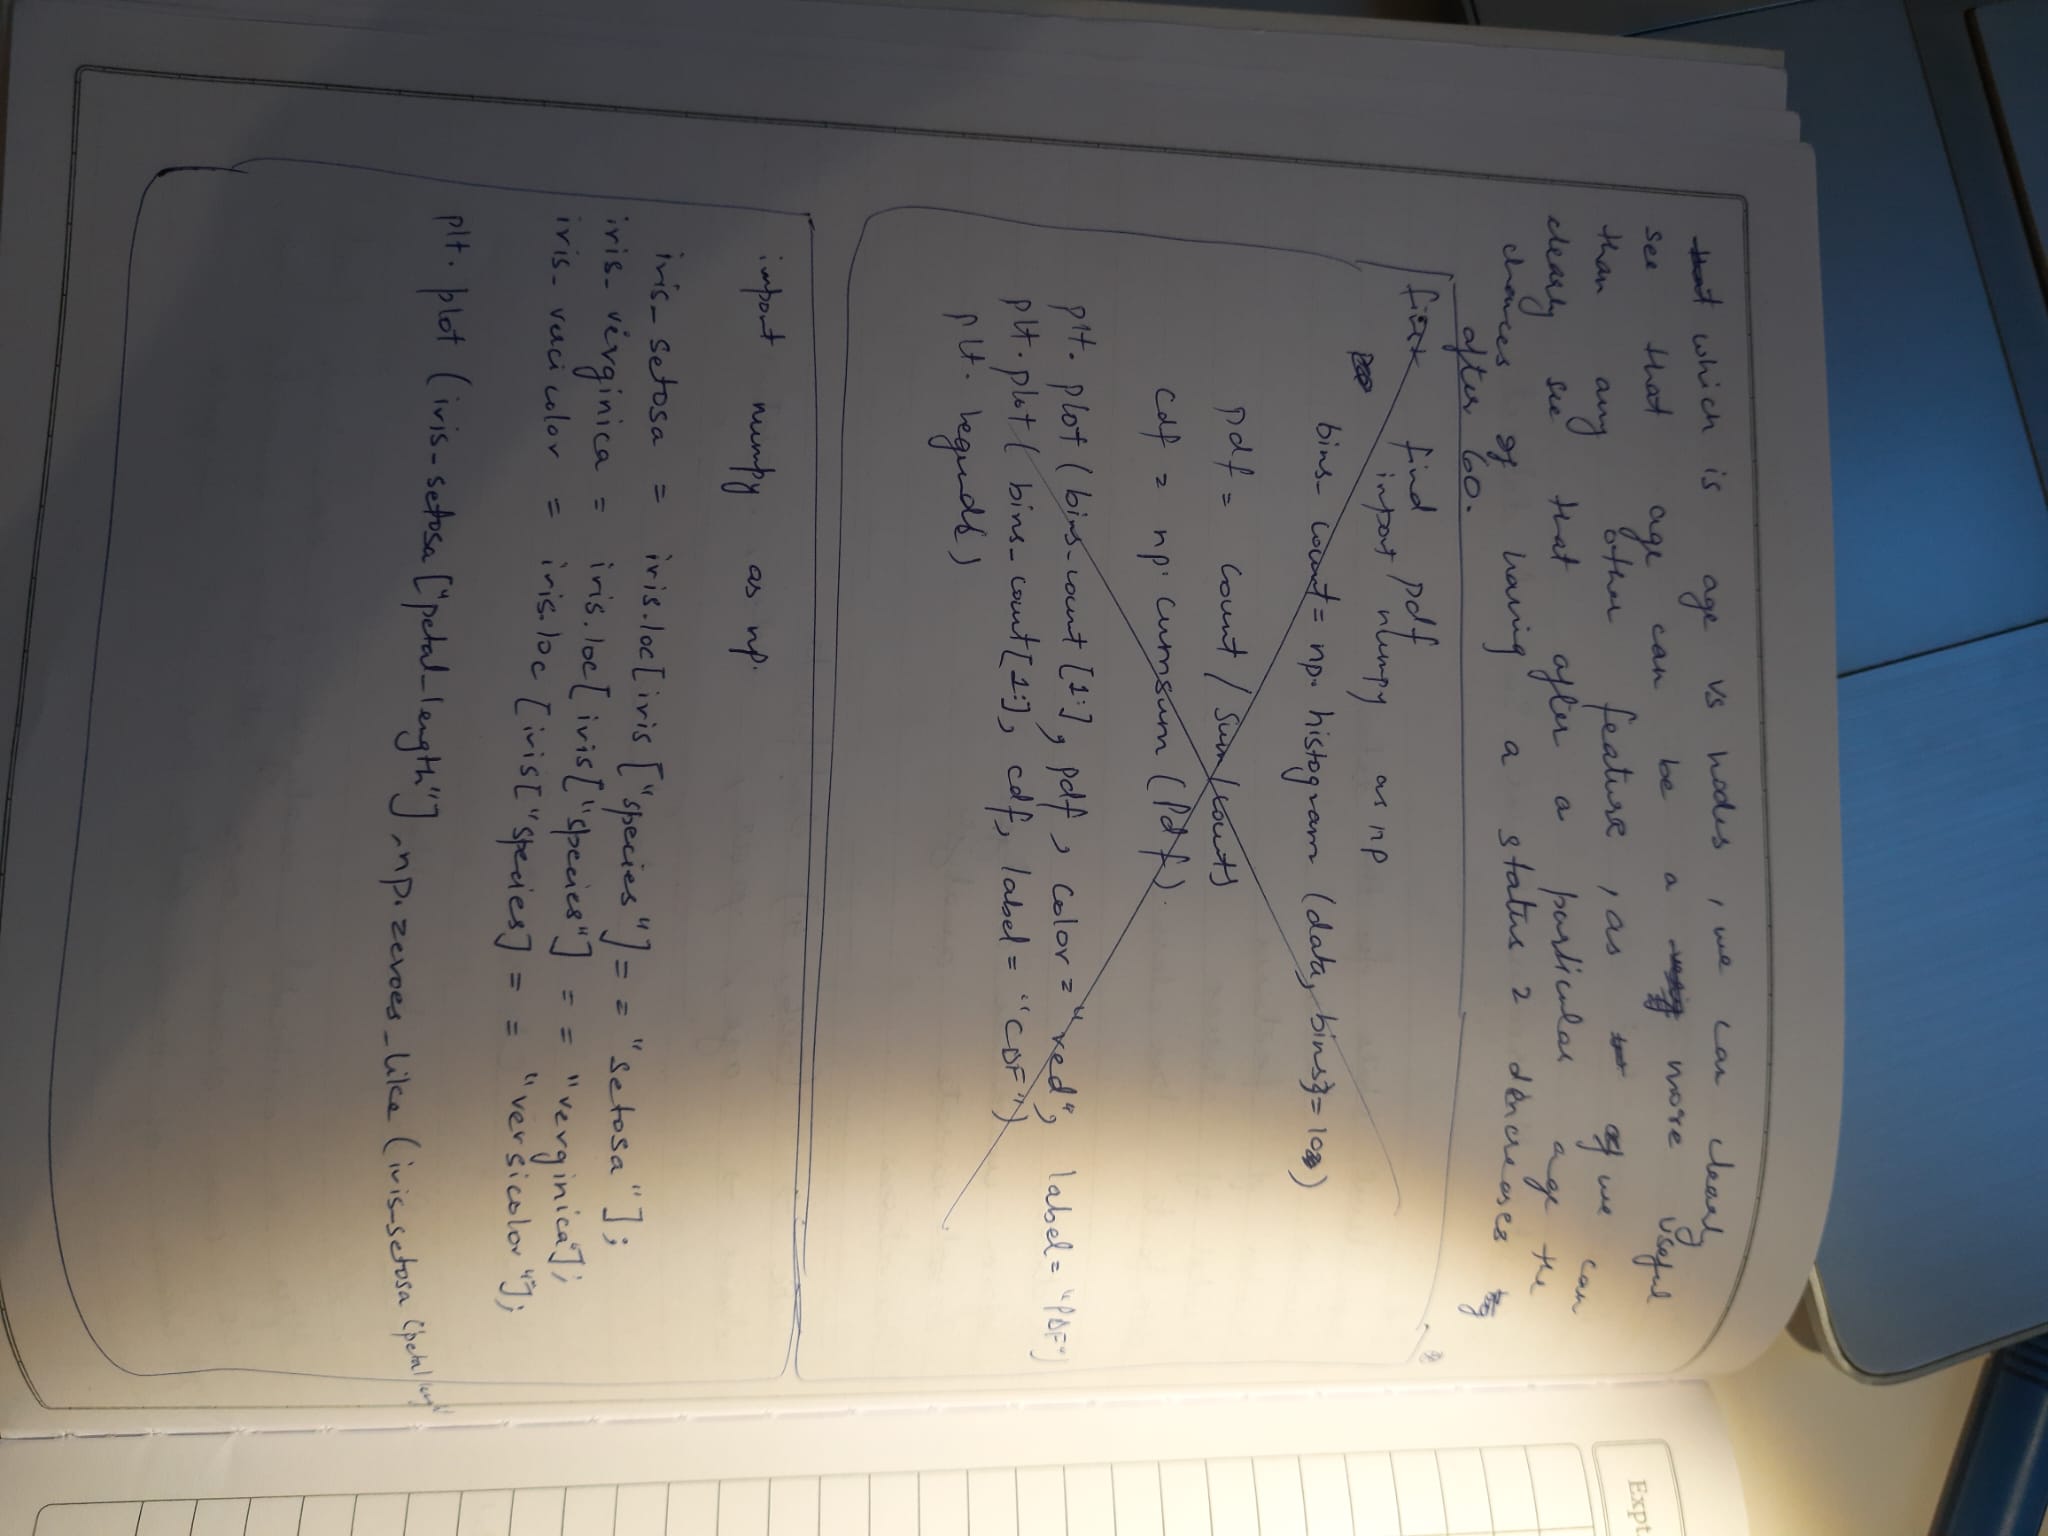 which is age vs nodes, we can clearly
see that age can be a more useful
than any other feature, as we can
clearly see that after a particular age the
chances of having a status 2 dencreases
after 60.
first find pdf
import numpy as np
bins_count = np. histogram (data, bins = 10)
Pdf = count / sum(count)
cdf = np. cumsum (Pdf).
plt. plot (bins_count [1:], pdf, color = "red", label = "PDF")
plt. plot ( bins_count[1:], cdf, label = "CDF")
plt. legends)
import numpy as np.
iris_setosa = iris.loc[iris ["species"] == "setosa"];
iris_verginica = iris.loc[iris["species"] == "verginica"];
iris_vericolor = iris.loc [iris["species] == "versicolor"];
plt. plot (iris_setosa["petal_length"], np.zeroes_like (iris_setosa
Expt